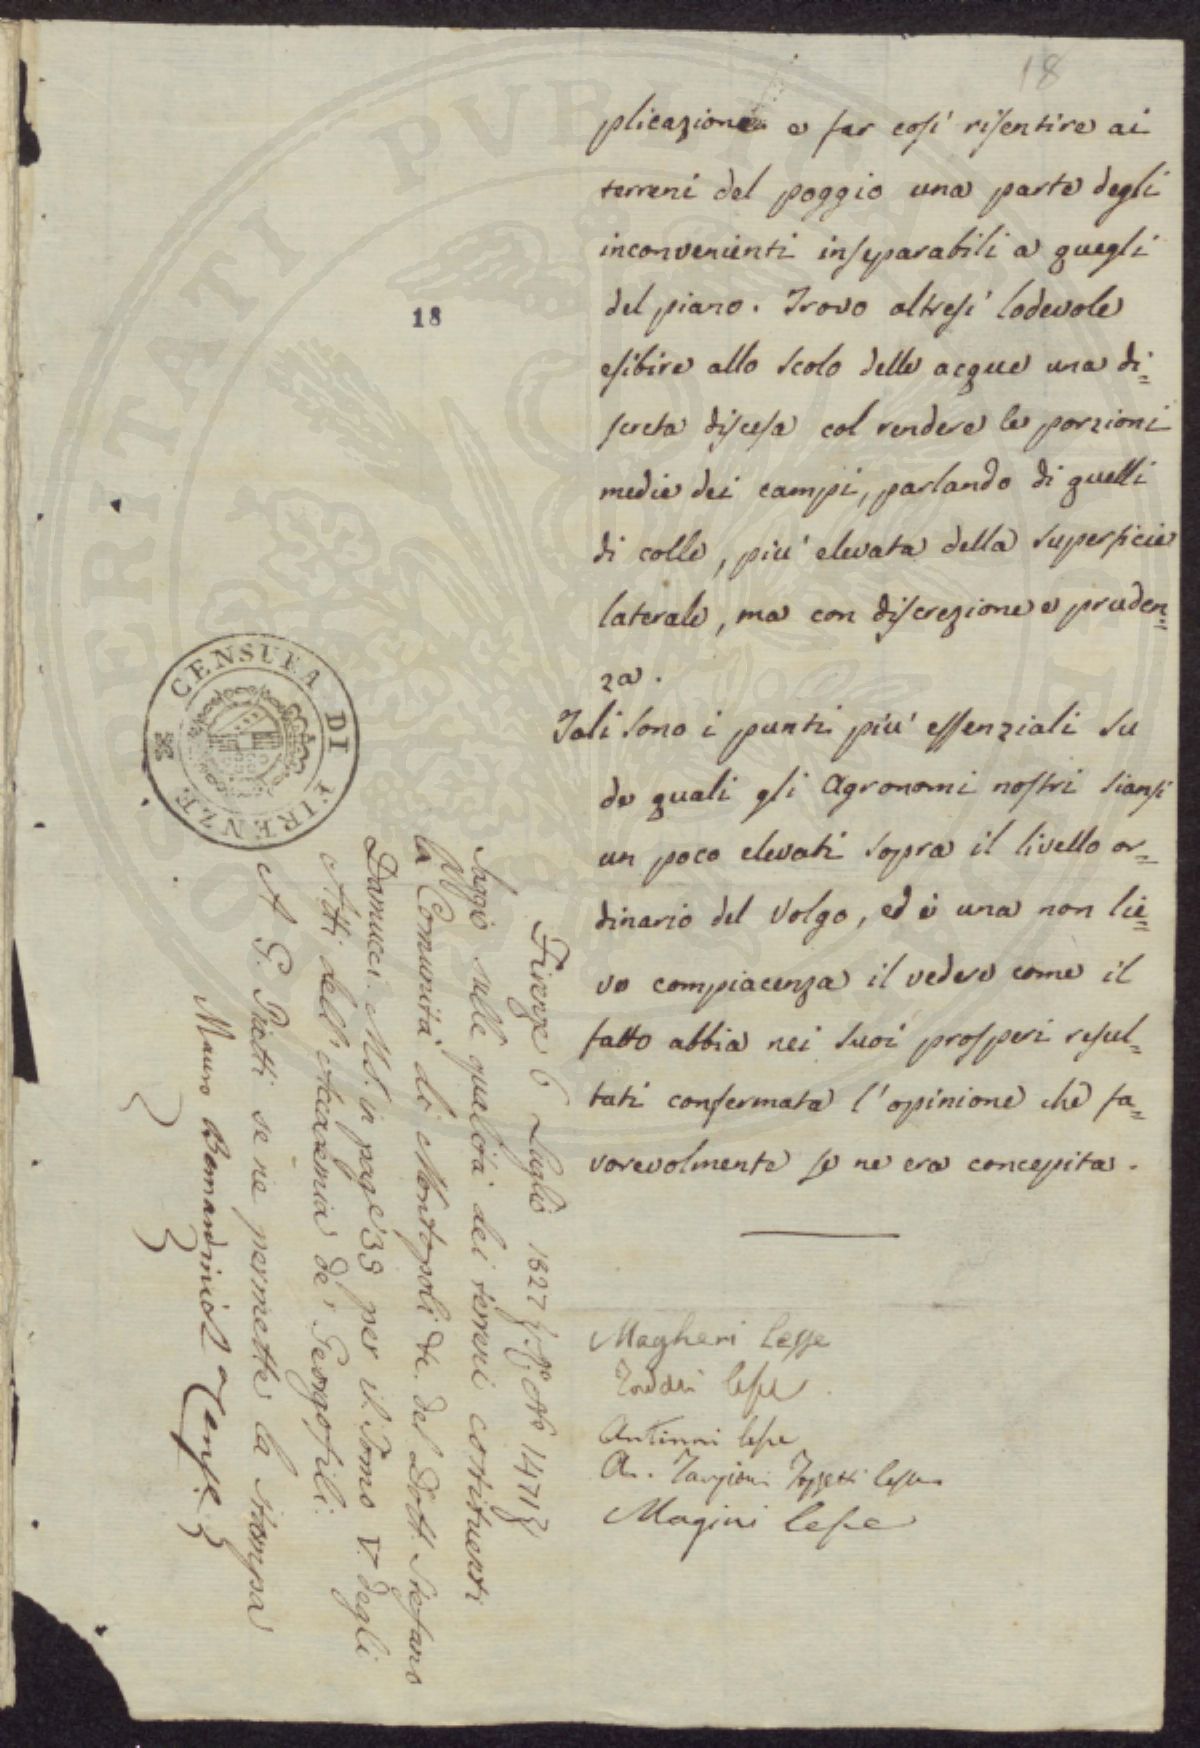 18
plicazione e far così risentire ai
terreni del poggio una parte degli
inconvenienti inseparabili a quegli
del piano. Trovo altresì lodevole
esibire allo scolo delle acque una di=
screta discesa col rendere le porzioni
medie dei campi, parlando di quelli
di colle, più elevata della superficie
laterale, ma con discrezione e pruden=
za.
Tali sono i punti più essenziali su
de quali gli Agronomi nostri siansi
un poco elevati sopra il livello or=
dinario del volgo, ed è una non lie=
ve compiacenza il vedere come il
fatto abbia nei suoi prosperi resul=
tati confermata l'opinione che fa=
vorevolmente se ne era concepita.
Magheri lesse
Taddei lesse
Antinori lesse
A. Targioni Tozzetti lesse
Magini lesse
18
CENSURA DI FIRENZE
Firenze 6 Luglio 1827 N° 1471
Saggio sulle qualità dei terreni costituenti
la Comunità di Montopoli di. del Dott. Stefano
Danucci. MS. in pag.e 39 per il Tomo V. degli
Atti dell'Accademia de' Georgofili.
A G. Piatti se ne permette la stampa
Mauro Bernardini Cens.e
PUBLICA
PROSPERITATI